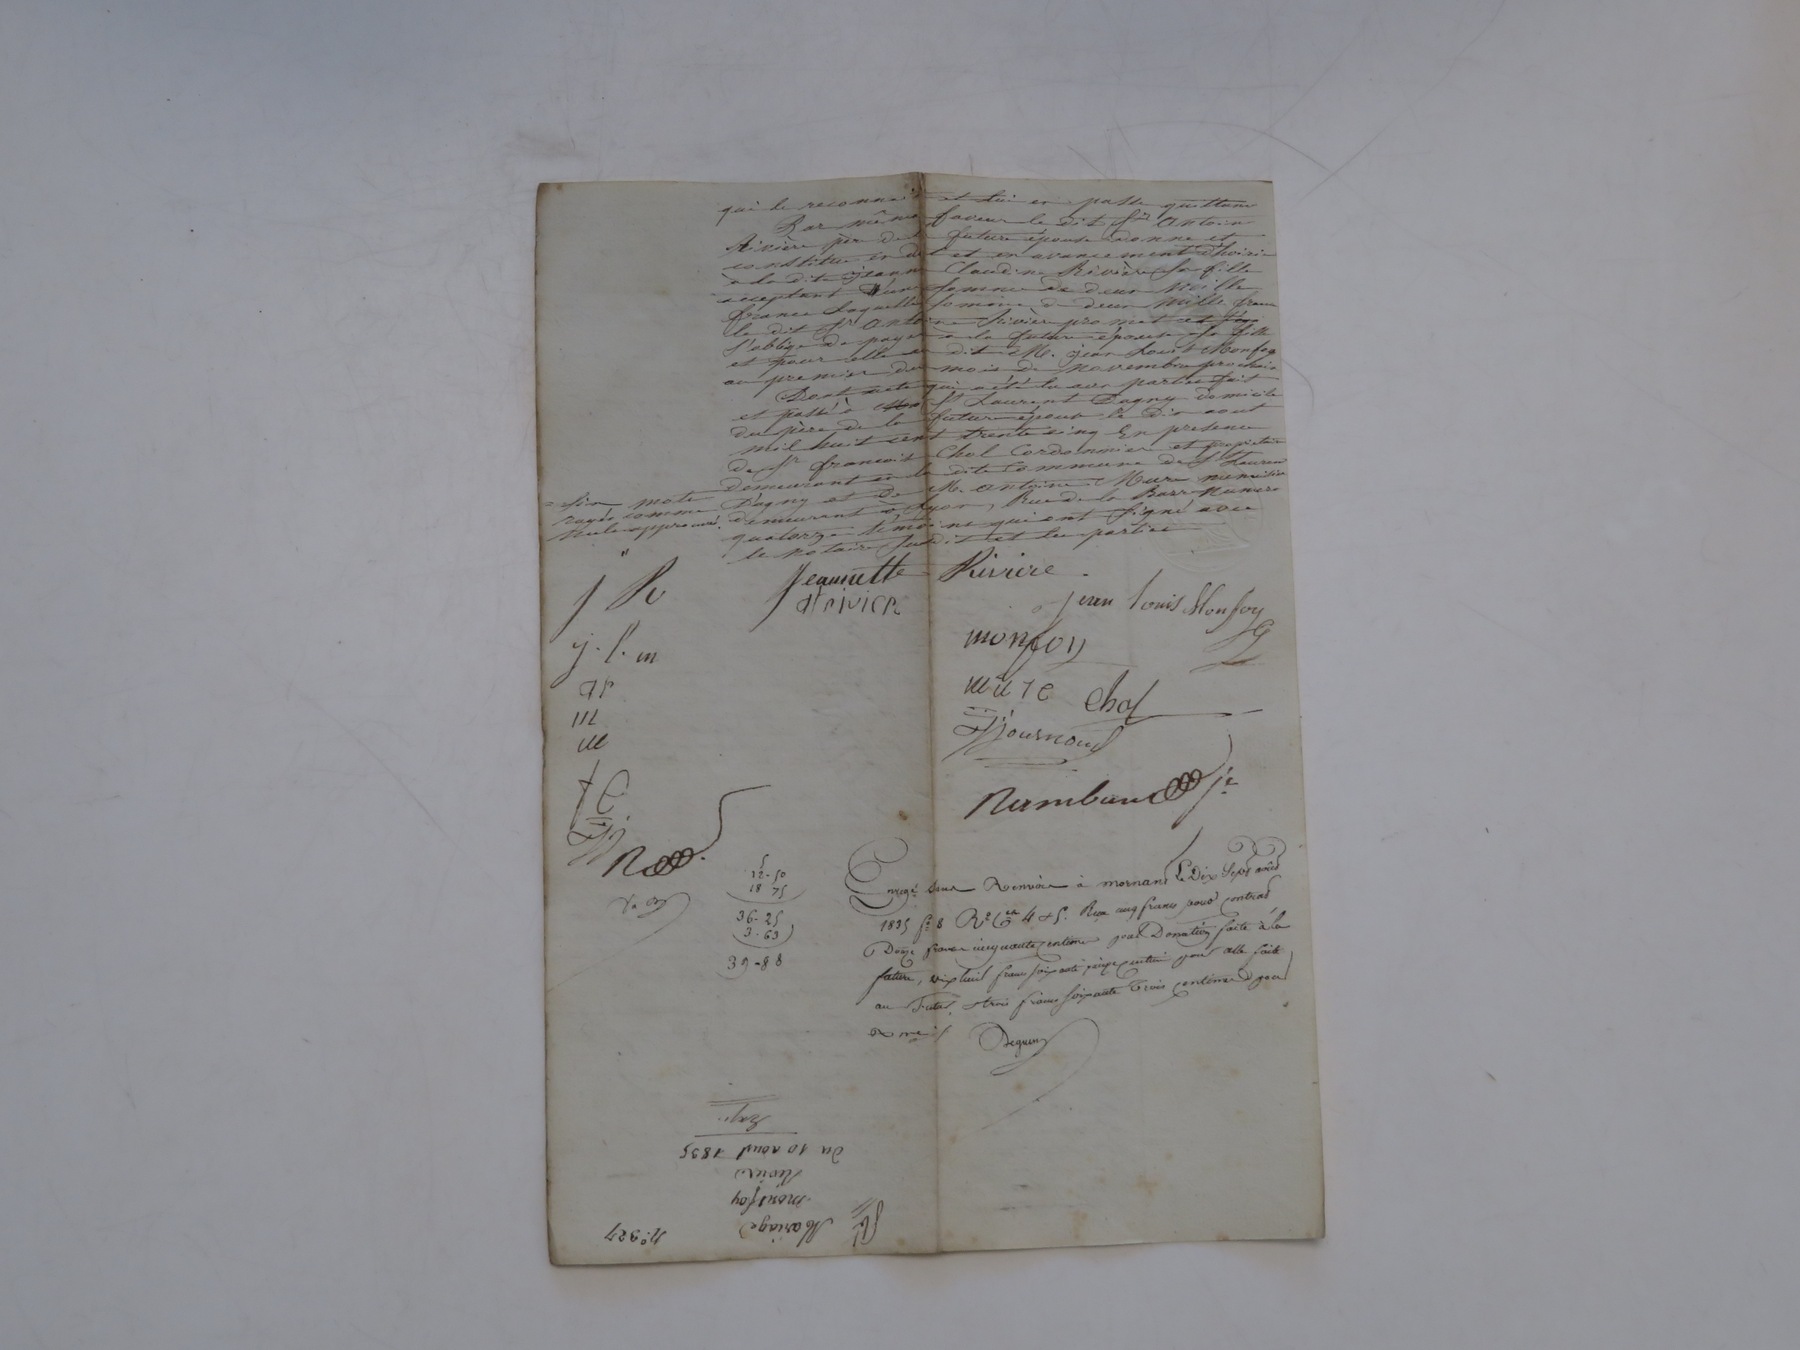 qui le reconnait et lui en passe quittance
Par même faveur le dit Sr Antoine
Rivière père de la future épouse donne et
constitue en dot et en avancement d'hoirie
à la dite Jeanne Claudine Rivière sa fille
acceptant d'une somme de deux mille
francs laquelle somme de deux mille francs
le dit Sr Antoine Rivière promet et
s'oblige de payer à la future épouse sa fille
et pour elle au dit M. Jean Louis Monfoy
au premier du mois de Novembre prochain
Dont acte qui a été lu aux parties fait
et passé à St Laurent D'agny domicile
du père de la future épouse le dix aout
mil huit cent trente cinq En présence
de Sr françois Chol Cordonnier et propriétaire
demeurant en la dite Commune de St Laurent
D'agny et de M. Antoine Mure
demeurant à Lyon, Rue de la Barre Numéro
quatorze témoins qui ont signé avec
le notaire susdit et les parties
= Six mots
rayés comme
nuls approuvés.
Jeannette Rivière
j R
arivier
jean louis Monfoy
j. l. m
monfoy
ar
mure Chol
m
m
Journoud
f C
Rambaud je
R
12-50
18 75
36-25
3-63
39-88
Enregé sans Renvois à mornant le Dix Sept août
1835 fo 8 Ro Ces 4 et 5. Reçu cinq francs pour contrat
Douze francs cinquante centimes pour Donation faite à la
future, dix huit francs soixante quinze centimes pour celle faite
au futur, et trois francs soixante trois centimes pour
Deguin
No 327
Mariage
montfoy
Rivière
du 10 aout 1835